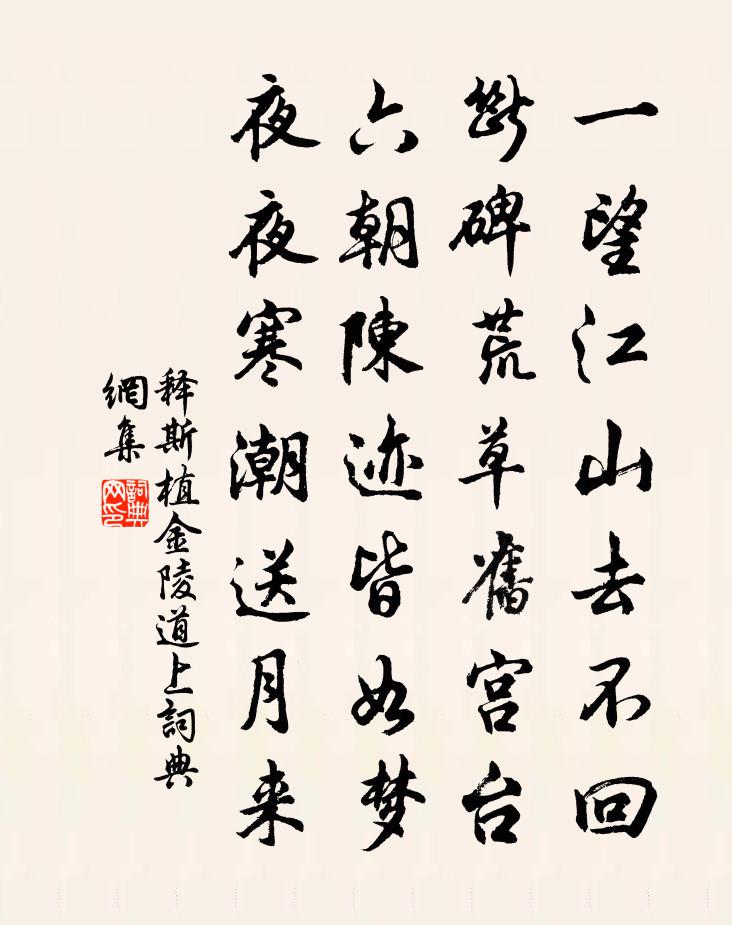 一望江山去不回
断碑荒草舊宫台
六朝陳迹皆如梦
夜夜寒潮送月来
释斯植金陵道上詞典
網集
詞典
网印